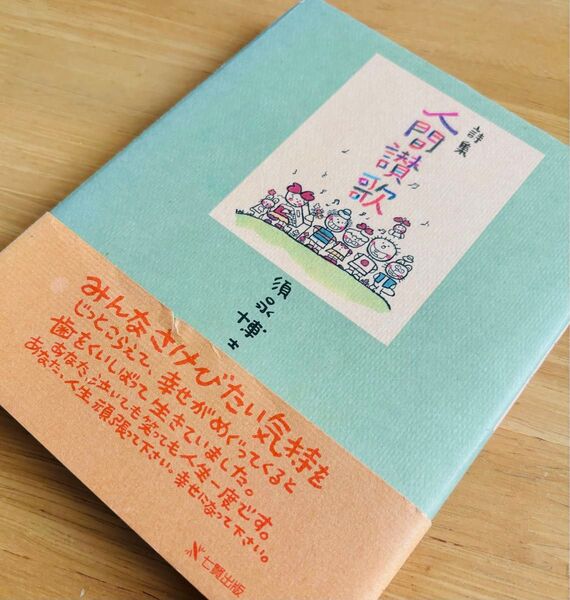 詩集
人間讃歌
須永博士
みんなさけびたい気持を
じっとこらえて、幸せがめぐってくると
歯をくいしばって生きていました。
あなた、泣いても笑っても人生一度です。
あなた、人生頑張って下さい。幸せになって下さい。
七賢出版